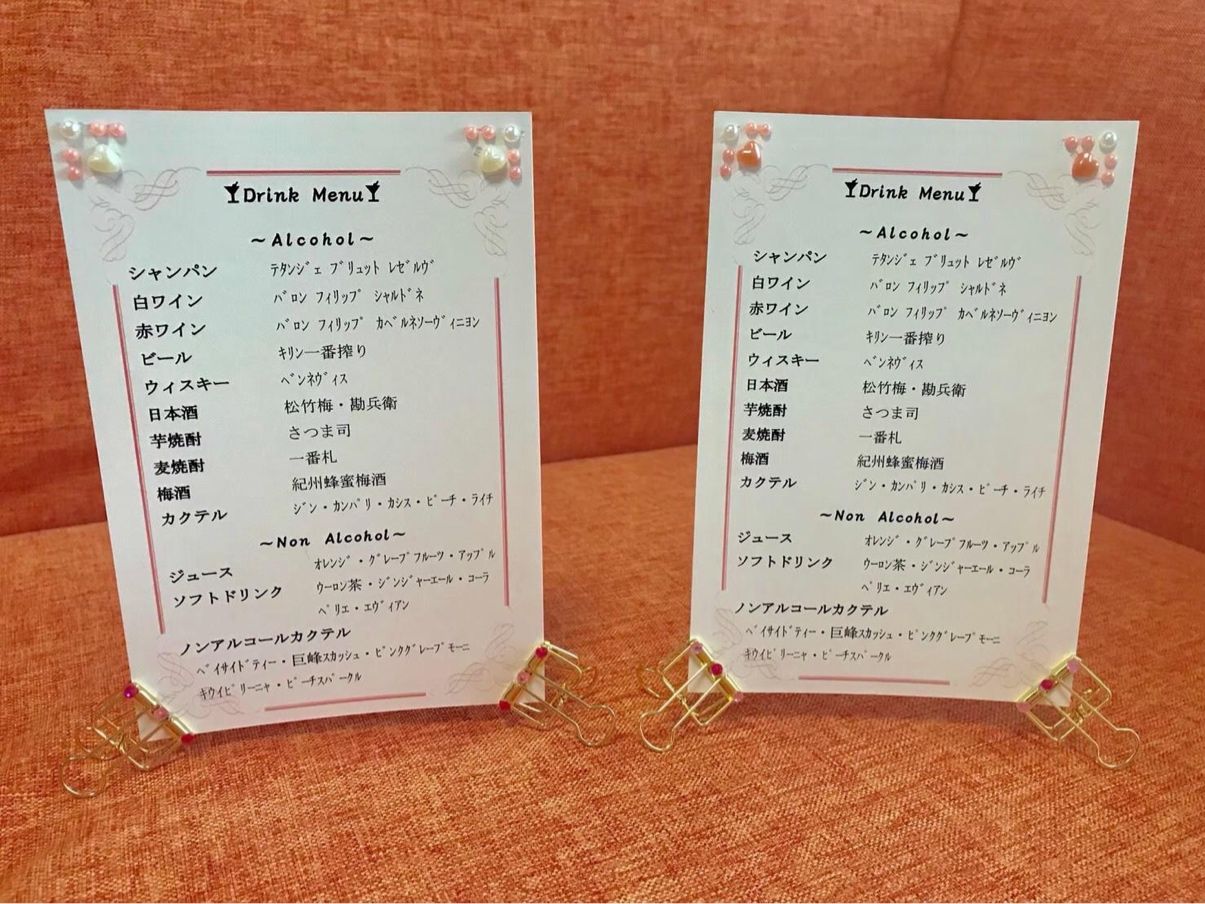 Drink Menu
～Alcohol～
シャンパン ﾃﾀﾝｼﾞｪ ﾌﾞﾘｭｯﾄ ﾚｾﾞﾙｳﾞ
白ワイン ﾊﾞﾛﾝ ﾌｨﾘｯﾌﾟ ｼｬﾙﾄﾞﾈ
赤ワイン ﾊﾞﾛﾝ ﾌｨﾘｯﾌﾟ ｶﾍﾞﾙﾈｿｰｳﾞｨﾆﾖﾝ
ビール ｷﾘﾝ一番搾り
ウィスキー ﾍﾞﾝﾈｳﾞｨｽ
日本酒 松竹梅・勘兵衛
芋焼酎 さつま司
麦焼酎 一番札
梅酒 紀州蜂蜜梅酒
カクテル ｼﾞﾝ・ｶﾝﾊﾟﾘ・ｶｼｽ・ﾋﾟｰﾁ・ﾗｲﾁ
～Non Alcohol～
ジュース ｵﾚﾝｼﾞ・ｸﾞﾚｰﾌﾟﾌﾙｰﾂ・ｱｯﾌﾟﾙ
ソフトドリンク ｳｰﾛﾝ茶・ｼﾞﾝｼﾞｬｰｴｰﾙ・ｺｰﾗ
ﾍﾟﾘｴ・ｴｳﾞｨｱﾝ
ノンアルコールカクテル
ﾍﾞｲｻｲﾄﾞﾃｨｰ・巨峰ｽｶｯｼｭ・ﾋﾟﾝｸｸﾞﾚｰﾌﾟﾓｰﾆ
ｷｳｲﾋﾟﾘｰﾆｬ・ﾋﾟｰﾁｽﾊﾟｰｸﾙ
Drink Menu
～Alcohol～
シャンパン ﾃﾀﾝｼﾞｪ ﾌﾞﾘｭｯﾄ ﾚｾﾞﾙｳﾞ
白ワイン ﾊﾞﾛﾝ ﾌｨﾘｯﾌﾟ ｼｬﾙﾄﾞﾈ
赤ワイン ﾊﾞﾛﾝ ﾌｨﾘｯﾌﾟ ｶﾍﾞﾙﾈｿｰｳﾞｨﾆﾖﾝ
ビール ｷﾘﾝ一番搾り
ウィスキー ﾍﾞﾝﾈｳﾞｨｽ
日本酒 松竹梅・勘兵衛
芋焼酎 さつま司
麦焼酎 一番札
梅酒 紀州蜂蜜梅酒
カクテル ｼﾞﾝ・ｶﾝﾊﾟﾘ・ｶｼｽ・ﾋﾟｰﾁ・ﾗｲﾁ
～Non Alcohol～
ジュース ｵﾚﾝｼﾞ・ｸﾞﾚｰﾌﾟﾌﾙｰﾂ・ｱｯﾌﾟﾙ
ソフトドリンク ｳｰﾛﾝ茶・ｼﾞﾝｼﾞｬｰｴｰﾙ・ｺｰﾗ
ﾍﾟﾘｴ・ｴｳﾞｨｱﾝ
ノンアルコールカクテル
ﾍﾞｲｻｲﾄﾞﾃｨｰ・巨峰ｽｶｯｼｭ・ﾋﾟﾝｸｸﾞﾚｰﾌﾟﾓｰﾆ
ｷｳｲﾋﾟﾘｰﾆｬ・ﾋﾟｰﾁｽﾊﾟｰｸﾙ